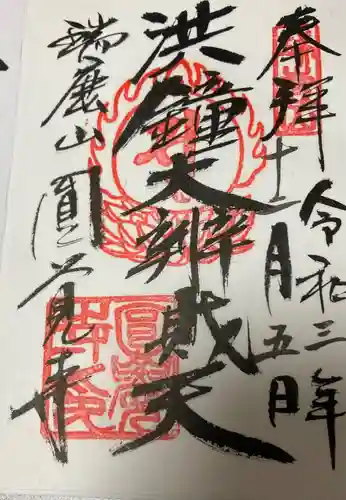 奉拝
令和三年
十二月五日
洪鐘大辨財天
瑞鹿山圓覚寺